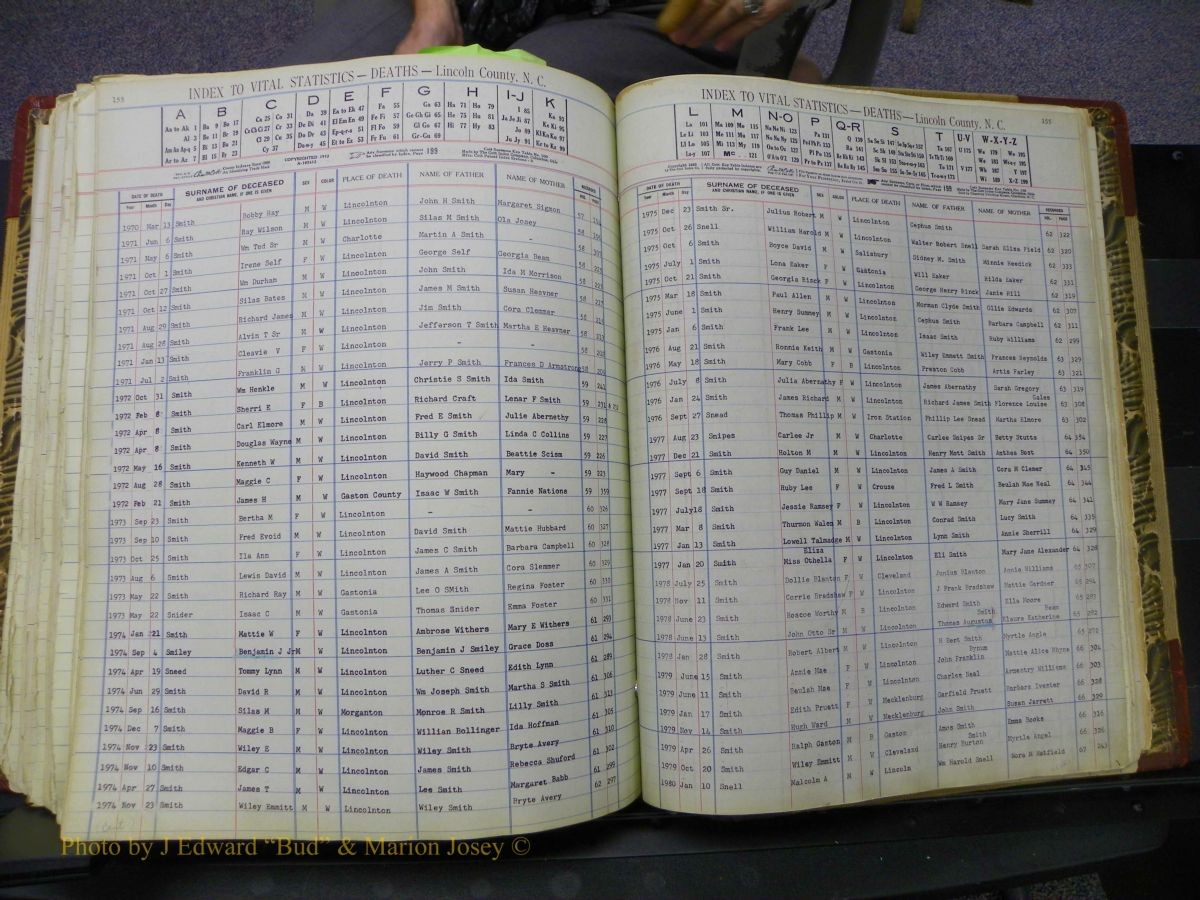 155
INDEX TO VITAL STATISTICS — DEATHS — Lincoln County, N. C.
A B C D E F G H I-J K
DATE OF DEATH SURNAME OF DECEASED SEX COLOR PLACE OF DEATH NAME OF FATHER NAME OF MOTHER RECORDED
Year Month Day AND CHRISTIAN NAME, IF ONE IS GIVEN VOL. PAGE
1970 Mar 13 Smith Bobby Ray M W Lincolnton John H Smith Margaret Sigmon 57
1971 Jun 6 Smith Ray Wilson M W Lincolnton Silas M Smith Ola Josey 58
1971 May 6 Smith Wm Ted Sr M W Charlotte Martin A Smith - 58
1971 Oct 1 Smith Irene Self F W Lincolnton George Self Georgia Beam 58
1971 Oct 27 Smith Wm Durham M W Lincolnton John Smith Ida M Morrison 58
1971 Oct 12 Smith Silas Bates M W Lincolnton James M Smith Susan Heavner 58
1971 Aug 29 Smith Richard James M W Lincolnton Jim Smith Cora Clemmer 58
1971 Aug 28 Smith Alvin T Sr M W Lincolnton Jefferson T Smith Martha E Heavner 58
1971 Jan 13 Smith Cleavie V F W Lincolnton - - 58
1971 Jul 2 Smith Franklin G M W Lincolnton Jerry P Smith Frances D Armstrong 58
1972 Oct 31 Smith Wm Henkle M W Lincolnton Christie S Smith Ida Smith 59 241
1972 Feb 8 Smith Sherri E F B Lincolnton Richard Craft Lenar F Smith 59
1972 Apr 8 Smith Carl Elmore M W Lincolnton Fred E Smith Julie Abernethy 59 228
1972 Apr 8 Smith Douglas Wayne M W Lincolnton Billy G Smith Linda C Collins 59 227
1972 May 16 Smith Kenneth W M W Lincolnton David Smith Beattie Scism 59 226
1972 Aug 28 Smith Maggie C F W Lincolnton Haywood Chapman Mary - 59 223
1972 Feb 21 Smith James H M W Gaston County Isaac W Smith Fannie Nations 59 359
1973 Sep 23 Smith Bertha M F W Lincolnton - - 60 326
1973 Sep 10 Smith Fred Evoid M W Lincolnton David Smith Mattie Hubbard 60 327
1973 Oct 25 Smith Ila Ann F W Lincolnton James C Smith Barbara Campbell 60 328
1973 Aug 6 Smith Lewis David M W Lincolnton James A Smith Cora Slemmer 60 329
1973 May 22 Smith Richard Ray M W Gastonia Lee O SMith Regina Foster 60 330
1973 May 22 Snider Isaac C M W Gastonia Thomas Snider Emma Foster 60 331
1974 Jan 21 Smith Mattie W F W Lincolnton Ambrose Withers Mary E Withers 61 293
1974 Sep 4 Smiley Benjamin J Jr M W Lincolnton Benjamin J Smiley Grace Doss 61 294
1974 Apr 19 Sneed Tommy Lynn M W Lincolnton Luther C Sneed Edith Lynn 61 289
1974 Jun 29 Smith David R M W Lincolnton Wm Joseph Smith Martha S Smith 61 306
1974 Sep 16 Smith Silas M M W Morganton Monroe R Smith Lilly Smith 61 313
1974 Dec 7 Smith Maggie B F W Lincolnton Willian Bollinger Ida Hoffman 61 305
1974 Nov 23 Smith Wiley E M W Lincolnton Wiley Smith Bryte Avery 61 310
1974 Nov 10 Smith Edgar C M W Lincolnton James Smith Rebecca Shuford 61 302
1974 Apr 27 Smith James T M W Lincolnton Lee Smith Margaret Babb 61 299
1974 Nov 23 Smith Wiley Emmitt M W Lincolnton Wiley Smith Bryte Avery 62 297
INDEX TO VITAL STATISTICS — DEATHS — Lincoln County, N. C. 155
L M N-O P Q-R S T U-V W-X-Y-Z
DATE OF DEATH SURNAME OF DECEASED SEX COLOR PLACE OF DEATH NAME OF FATHER NAME OF MOTHER RECORDED
Year Month Day AND CHRISTIAN NAME, IF ONE IS GIVEN VOL. PAGE
1975 Dec 23 Smith Sr. Julius Robert M W Lincolnton Cephus Smith 62 322
1975 Oct 26 Snell William Harold M W Salisbury Walter Robert Snell Sarah Eliza Field 62 320
1975 Oct 6 Smith Boyce David M W Gastonia Sidney M. Smith Minnie Reedick 62 333
1975 July 1 Smith Lona Eaker F W Lincolnton Will Eaker Hilda Eaker 62 331
1975 Oct 21 Smith Georgia Rinck F W Lincolnton George Henry Rinck Janie Hill 62 319
1975 Mar 18 Smith Paul Allen M W Lincolnton Norman Clyde Smith Ollie Edwards 62 307
1975 June 1 Smith Henry Sumney M W Lincolnton Cephus Smith Barbara Campbell 62 311
1975 Jan 6 Smith Frank Lee M W Lincolnton Isaac Smith Ruby Williams 62 299
1976 Aug 21 Smith Ronnie Keith M W Gastonia Wiley Emmett Smith Frances Reynolds 63 329
1976 May 18 Smith Mary Cobb F W Lincolnton Preston Cobb Artis Farley 63 321
1976 July 8 Smith Julia Abernathy F W Lincolnton James Abernathy Sarah Gregory 63 319
1976 Jan 24 Smith James Richard M W Lincolnton Richard James Smith Florence Louise Sales 63 308
1976 Sept 27 Snead Thomas Phillip M W Iron Station Phillip Lee Snead Martha Elmore 63 302
1977 Aug 23 Snipes Carlee Jr M W Charlotte Carlee Snipes Sr Betty Stutts 64 354
1977 Dec 21 Smith Holton M M W Lincolnton Henry Matt Smith 64 350
1977 Sept 6 Smith Guy Daniel M W Lincolnton James A Smith Cora M Clemer 64 345
1977 Sept 18 Smith Ruby Lee F W Crouse Fred L Smith Beulah Mae Neal 64 344
1977 July 18 Smith Jessie Ramsey F W Lincolnton W W Ramsey Mary Jane Summey 64 341
1977 Mar 8 Smith Thurmon Walen M B Lincolnton Conrad Smith Lucy Smith 64 335
1977 Jan 13 Smith Lowell Talmadge M W Lincolnton Lynn Smith Annie Sherrill 64 329
1977 Jan 20 Smith Miss Othella Eliza F W Lincolnton Eli Smith Mary Jane Alexander 64 328
1978 July 25 Smith Dollie Blanton F W Cleveland Junius Blanton Annie Williams 65 307
1978 Nov 11 Smith Corrie Bradshaw F W Lincolnton J Frank Bradshaw Mattie Gardner 65 294
1978 June 23 Smith Roscoe Worthy M B Lincolnton Edward Smith Ella Moore 65 283
1978 June 13 Smith John Otto Sr M W Lincolnton Thomas Augustus Smith Klaura Katherine Beam 65 282
1978 Jan 28 Smith Robert Albert M W Lincolnton H Bert Smith Myrtle Angle 65 272
1979 June 15 Smith Annie Mae F W Lincolnton John Franklin Bynum Mattie Alice Rhyne 66 304
1979 June 11 Smith Beulah Mae F W Lincolnton Charles Neal Armentry Williams 66 303
1979 Jan 17 Smith Edith Pruett F W Mecklenburg Garfield Pruett Barbara Ivester 66 328
1979 Nov 14 Smith Hugh Ward M W Mecklenburg John Smith Susan Jarrett 66 329
1979 Apr 26 Smith Ralph Gaston M B Gaston Amos Smith Emma Rooks 66 316
1979 Oct 20 Smith Wiley Emmitt M W Cleveland Henry Burton Smith Myrtle Angel 66 326
1980 Jan 10 Snell Malcolm A M W Lincoln Wm Harold Snell Nora M Hatfield 67 243
Photo by J Edward “Bud” & Marion Josey ©